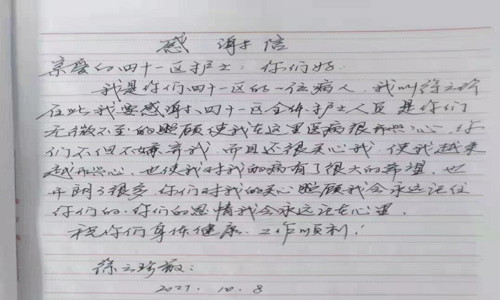 感谢信
亲爱的四十一区护士：你们好.
我是你们四十一区的一位病人，我叫徐云珍
在此我要感谢四十一区全体护士人员是你们
无微不至的照顾使我在这里医病很开心，你
们不但不嫌弃我，而且还很关心我，使我越来
越开心，也使我对我的病有了很大的希望，也
开朗了很多，你们对我的关心照顾我会永远记住
你们的，你们的恩情我会永远记在心里，
祝你们身体健康，工作顺利！
徐云珍敬：
2021. 10. 8